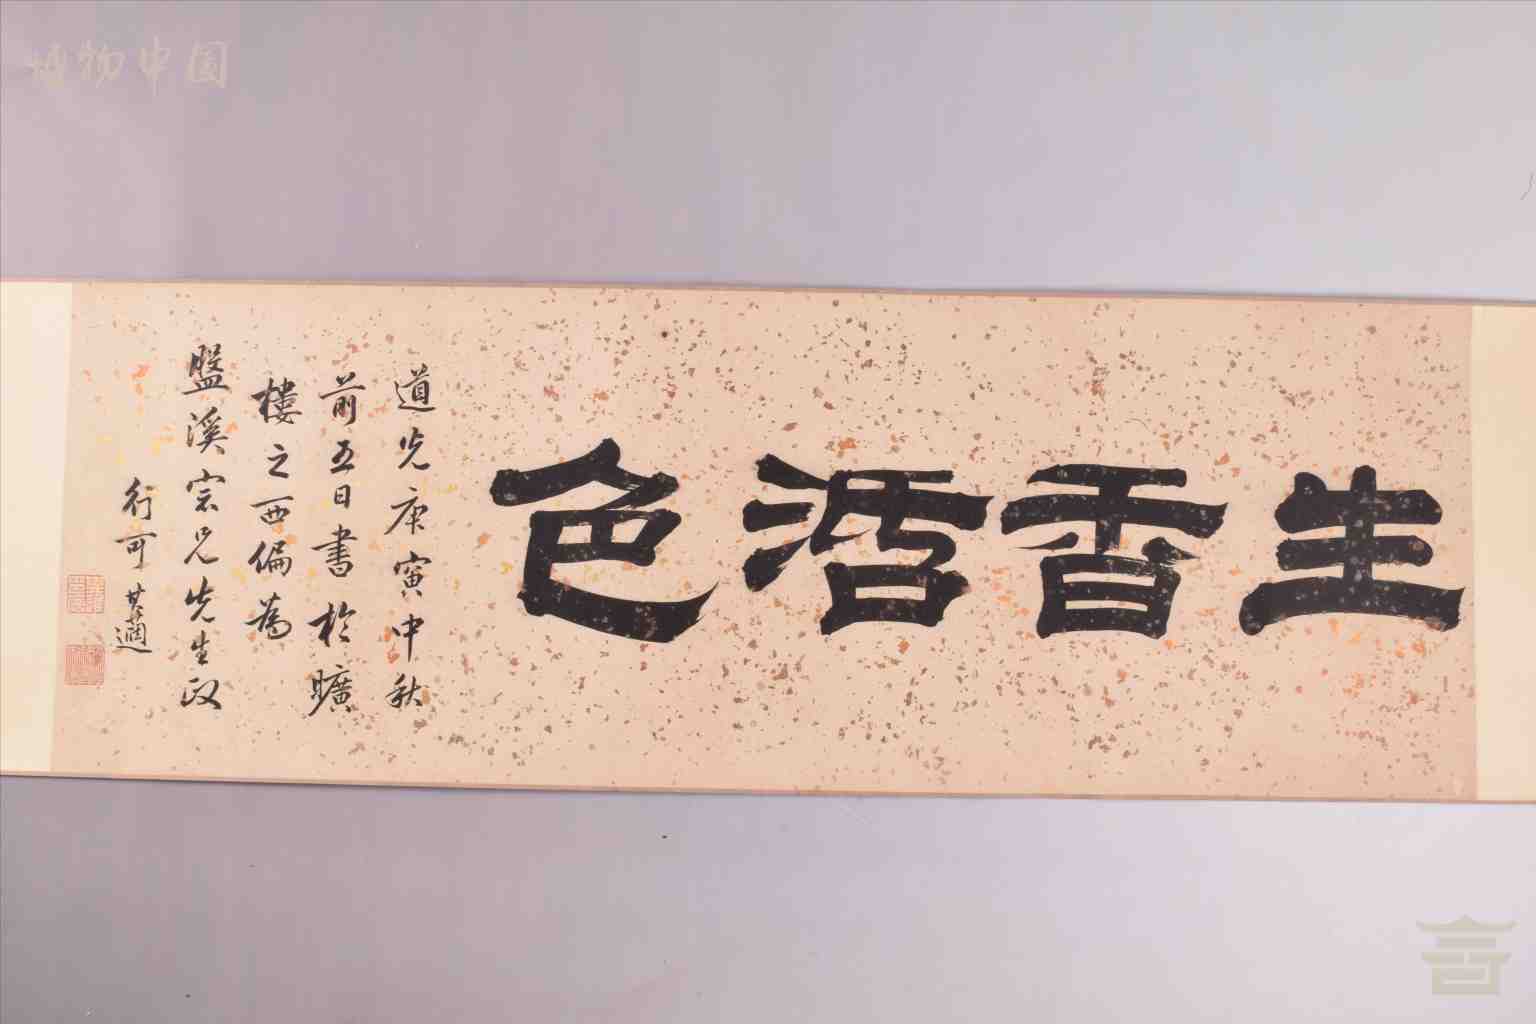 博物中国
生香活色
道光庚寅中秋
前五日書於曠
樓之西偏為
盤溪宗兄先生政
行可